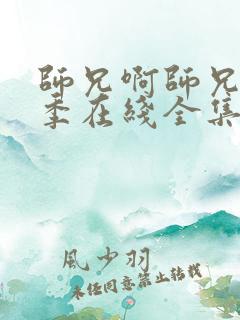 師兄啊師兄
季在綫全集
風少羽
未經同意禁止轉載